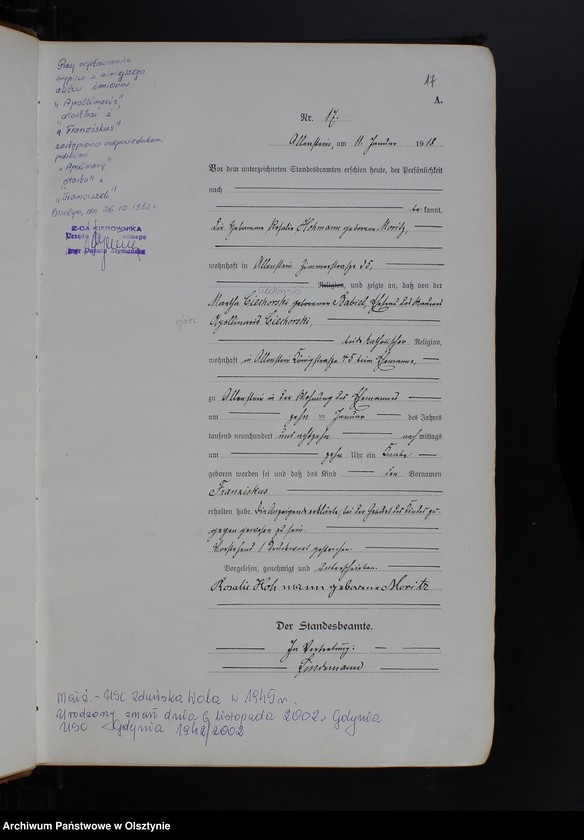 Przy wystawianiu
odpisu z niniejszego
aktu imiona
"Apollinaris",
"Martha" i
"Franziskus"
zastąpiono odpowiednimi
polskimi
"Apolinary"
"Marta" i
"Franciszek"
dn. 26.10.1982 r.
Z-CA KIEROWNIKA
Urzędu Stanu Cywilnego
mgr Danuta Szymańska
17
A.
Nr. 17.
Allenstein, am 11. Januar 1918.
Vor dem unterzeichneten Standesbeamten erschien heute, der Persönlichkeit
nach
bekannt,
die Hebamme Rosalie Hohmann geborene Moritz,
wohnhaft in Allenstein Zimmerstraße 35,
Religion, und zeigte an, daß von der
Ciechorski
Martha Ciechorski geborenen Babiel, Ehefrau des
Apollinaris Ciechorski,
beide katholischer Religion,
wohnhaft in Allenstein Königstraße 75 beim Ehemanne,
zu Allenstein in der Wohnung des Ehemannes
am zehn ten Januar des Jahres
tausend neunhundert und achtzehn nachmittags
um zehn Uhr ein Knabe
geboren worden sei und daß das Kind den Vornamen
Franziskus
erhalten habe. Die Anzeigende erklärte, bei der Geburt des Kindes zu-
gegen gewesen zu sein.
Vorstehend 1 Druckwort gestrichen.
Vorgelesen, genehmigt und unterschrieben.
Rosalie Hohmann geborene Moritz
Der Standesbeamte.
In Vertretung:
Lindemann
Małż. - USC Zduńska Wola w 1945 r.
Urodzony zmarł dnia 6 listopada 2002 r. Gdynia
USC Gdynia 1942/2002
Archiwum Państwowe w Olsztynie